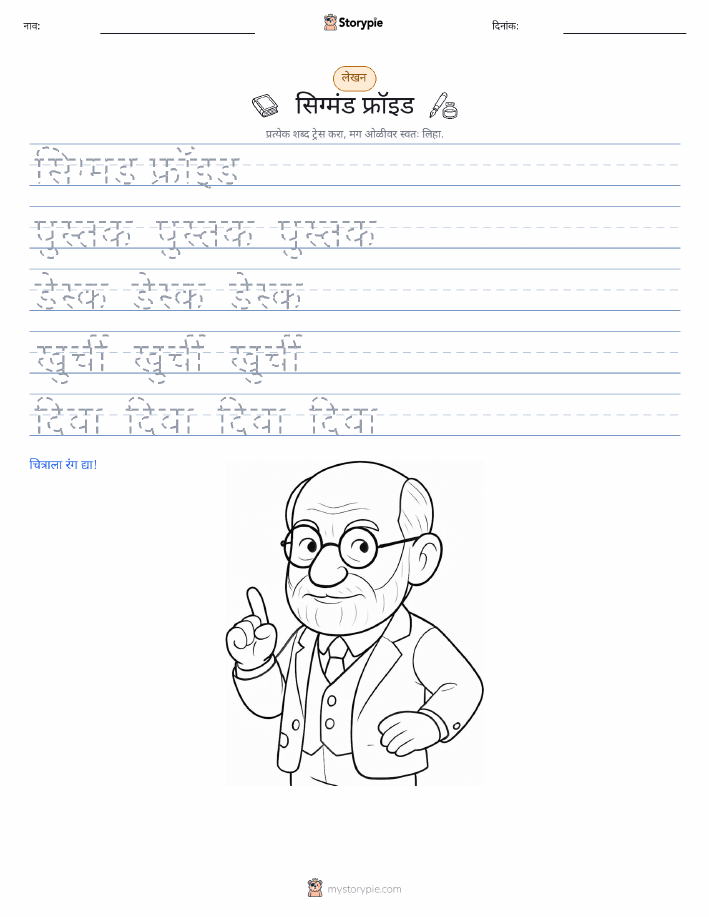 नाव:
Storypie
दिनांक:
लेखन
सिग्मंड फ्रॉइड
प्रत्येक शब्द ट्रेस करा, मग ओळीवर स्वतः लिहा.
सिग्मंड फ्रॉइड
पुस्तक पुस्तक पुस्तक
डेस्क डेस्क डेस्क
खुर्ची खुर्ची खुर्ची
दिवा दिवा दिवा दिवा
चित्राला रंग द्या!
mystorypie.com